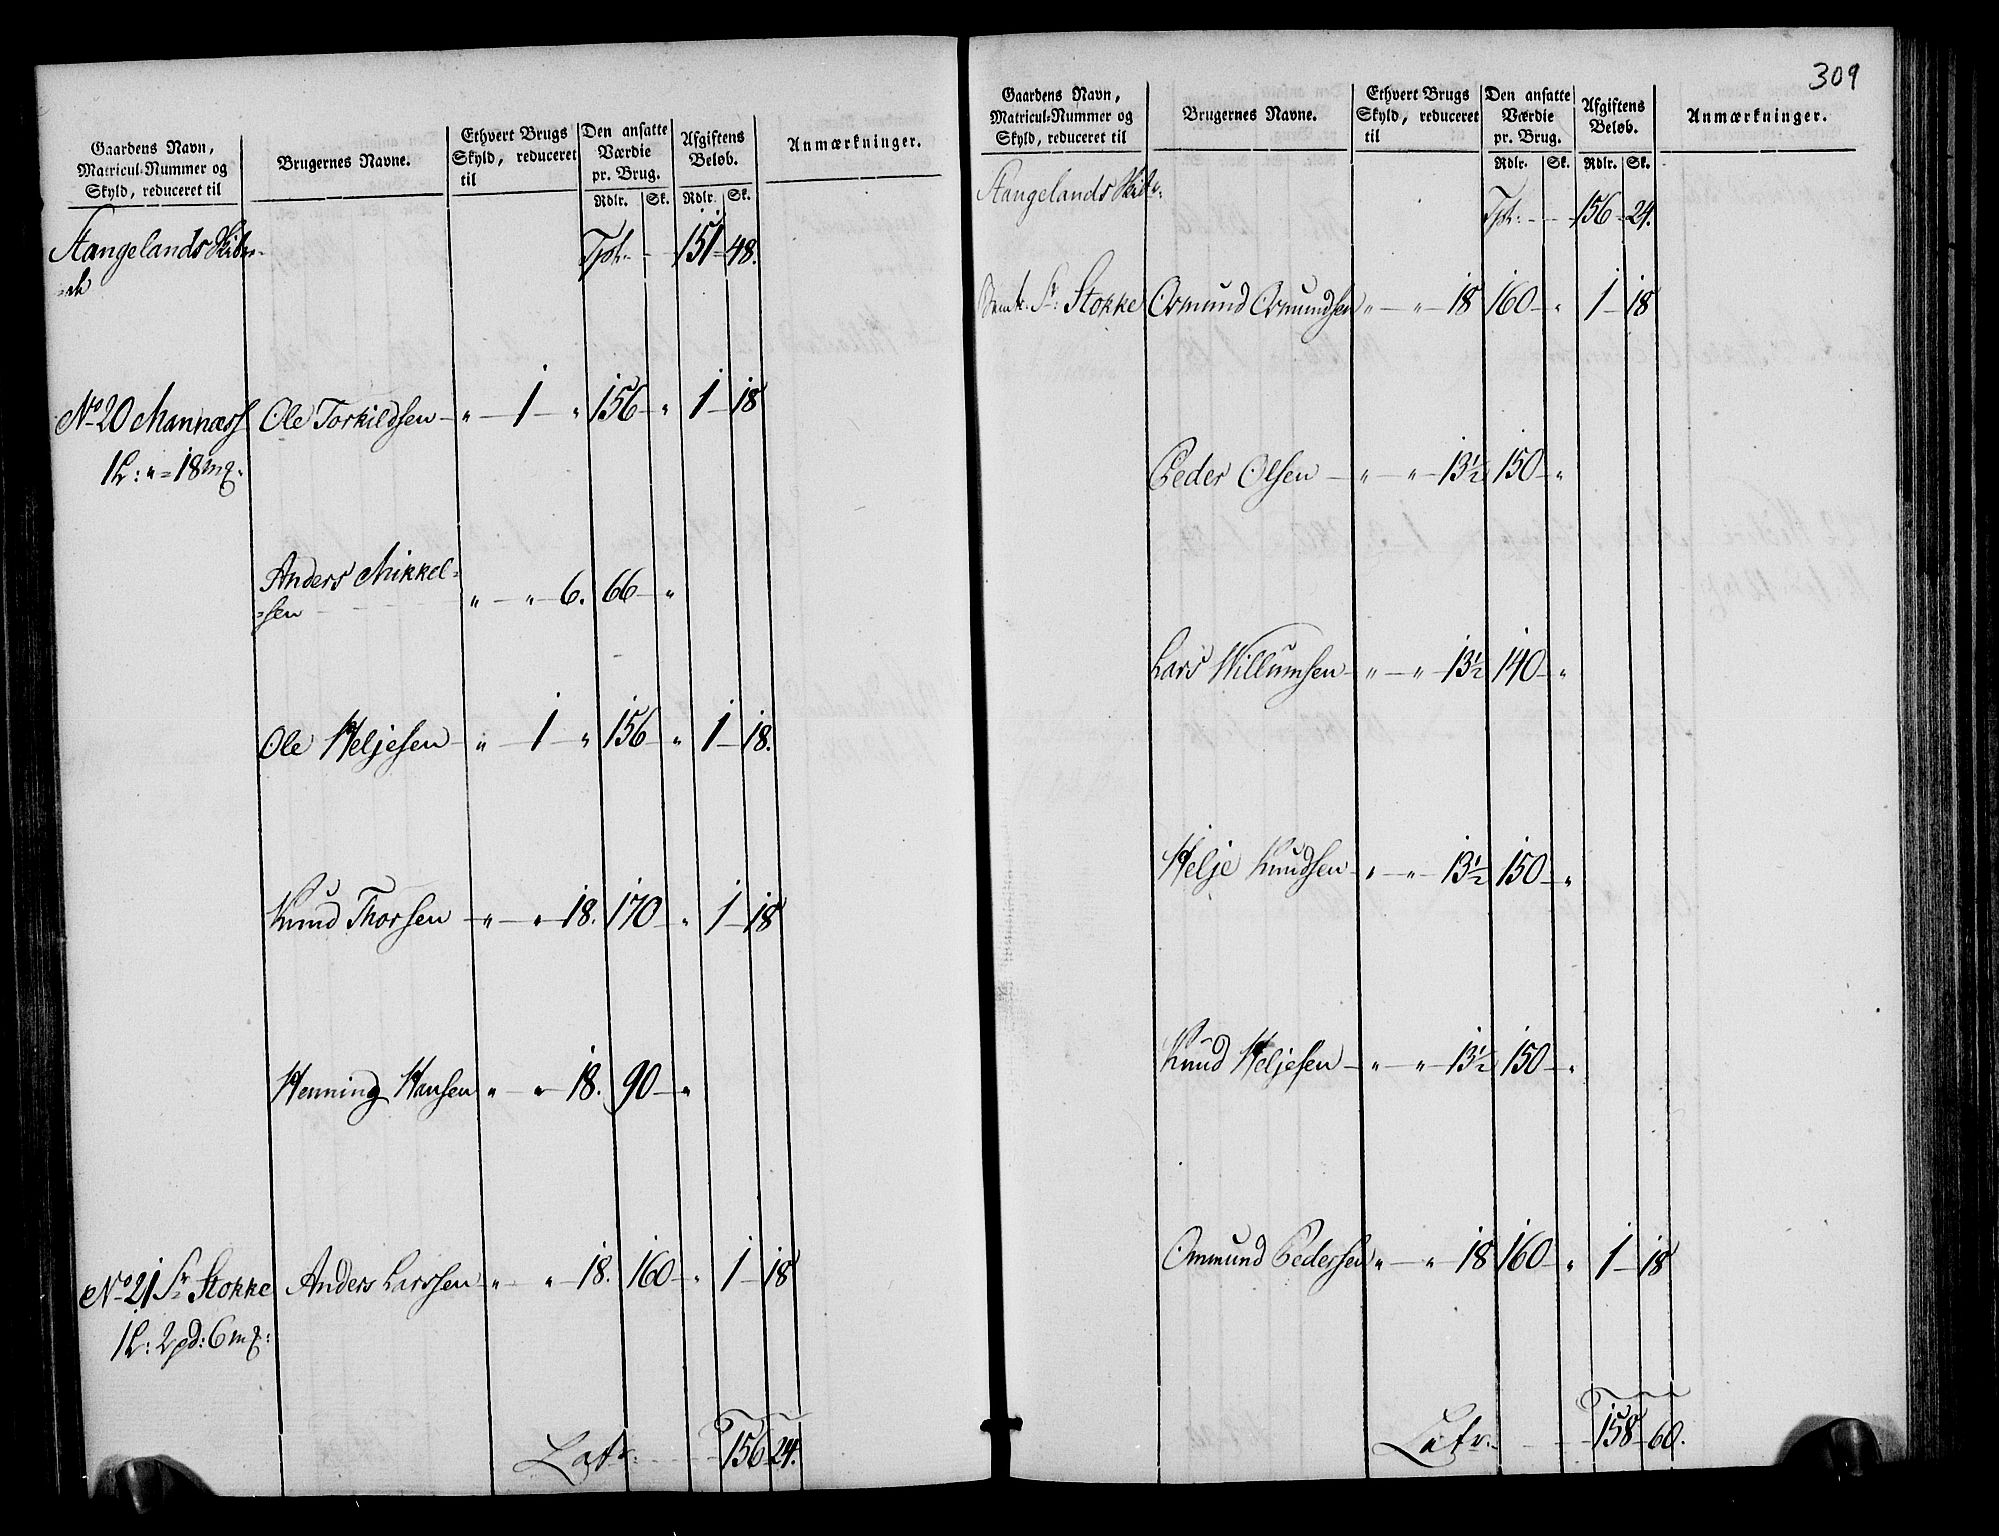 Gaardens Navn,
Matricul-Nummer og
Skyld, reduceret til
Brugernes Navne.
Ethvert Brugs
Skyld, reduceret
til
Den ansatte
Værdie
pr. Brug.
Rdlr. Sk.
Afgiftens
Beløb.
Rdlr. Sk.
Anmærkninger.
Stangelands Skibr-
=de
Tpt: - - 151 - 48.
No 20 Mannæss Ole Torkildsen - " - 1 - " 156 - " 1 - 18
1L: " = 18 mg.
Anders Mikkel=
=sen " - " - 6. 66 - "
Ole Heljesen - " - 1 - " 156 - " 1 - 18.
Knud Thorsen - " - " - 18. 170 - " 1 - 18
Henning Hansen " - " - 18. 90 - "
No 21 Sr. Stokke Anders Larssen " - " - 18. 160 - " 1 - 18
1L: 2 pd: 6 mg:
Latr: - - 156 - 24.
309
Gaardens Navn,
Matricul-Nummer og
Skyld, reduceret til
Brugernes Navne.
Ethvert Brugs
Skyld, reduceret
til
Den ansatte
Værdie
pr. Brug.
Rdlr. Sk.
Afgiftens
Beløb.
Rdlr. Sk.
Anmærkninger.
Stangelands Skibr:
Tpt: - - 156 - 24.
Sr: Stokke Osmund Osmundsen " - " - 18 160 - " 1 - 18
Peder Olsen - " - " - 13½ 150 - "
Lars Willumsen - " - " - 13½ 140 - "
Helje Knudsen - " - " - 13½ 150 - "
Knud Heljesen - " - " - 13½ 150 - "
Ommund Pedersen " - " - 18 160 - " 1 - 18
Latr: - - 158 - 60.